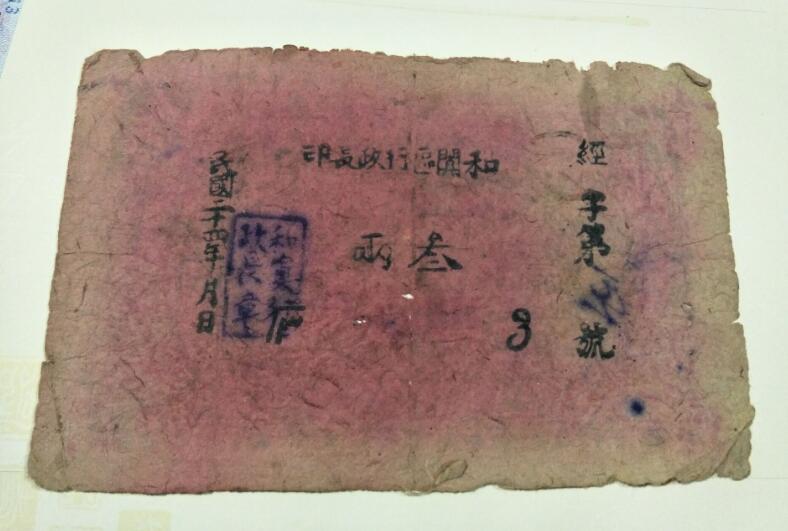 和闐區行政長印
經字第 號
叁兩
3
和闐行
政長章
民國二十四年 月 日